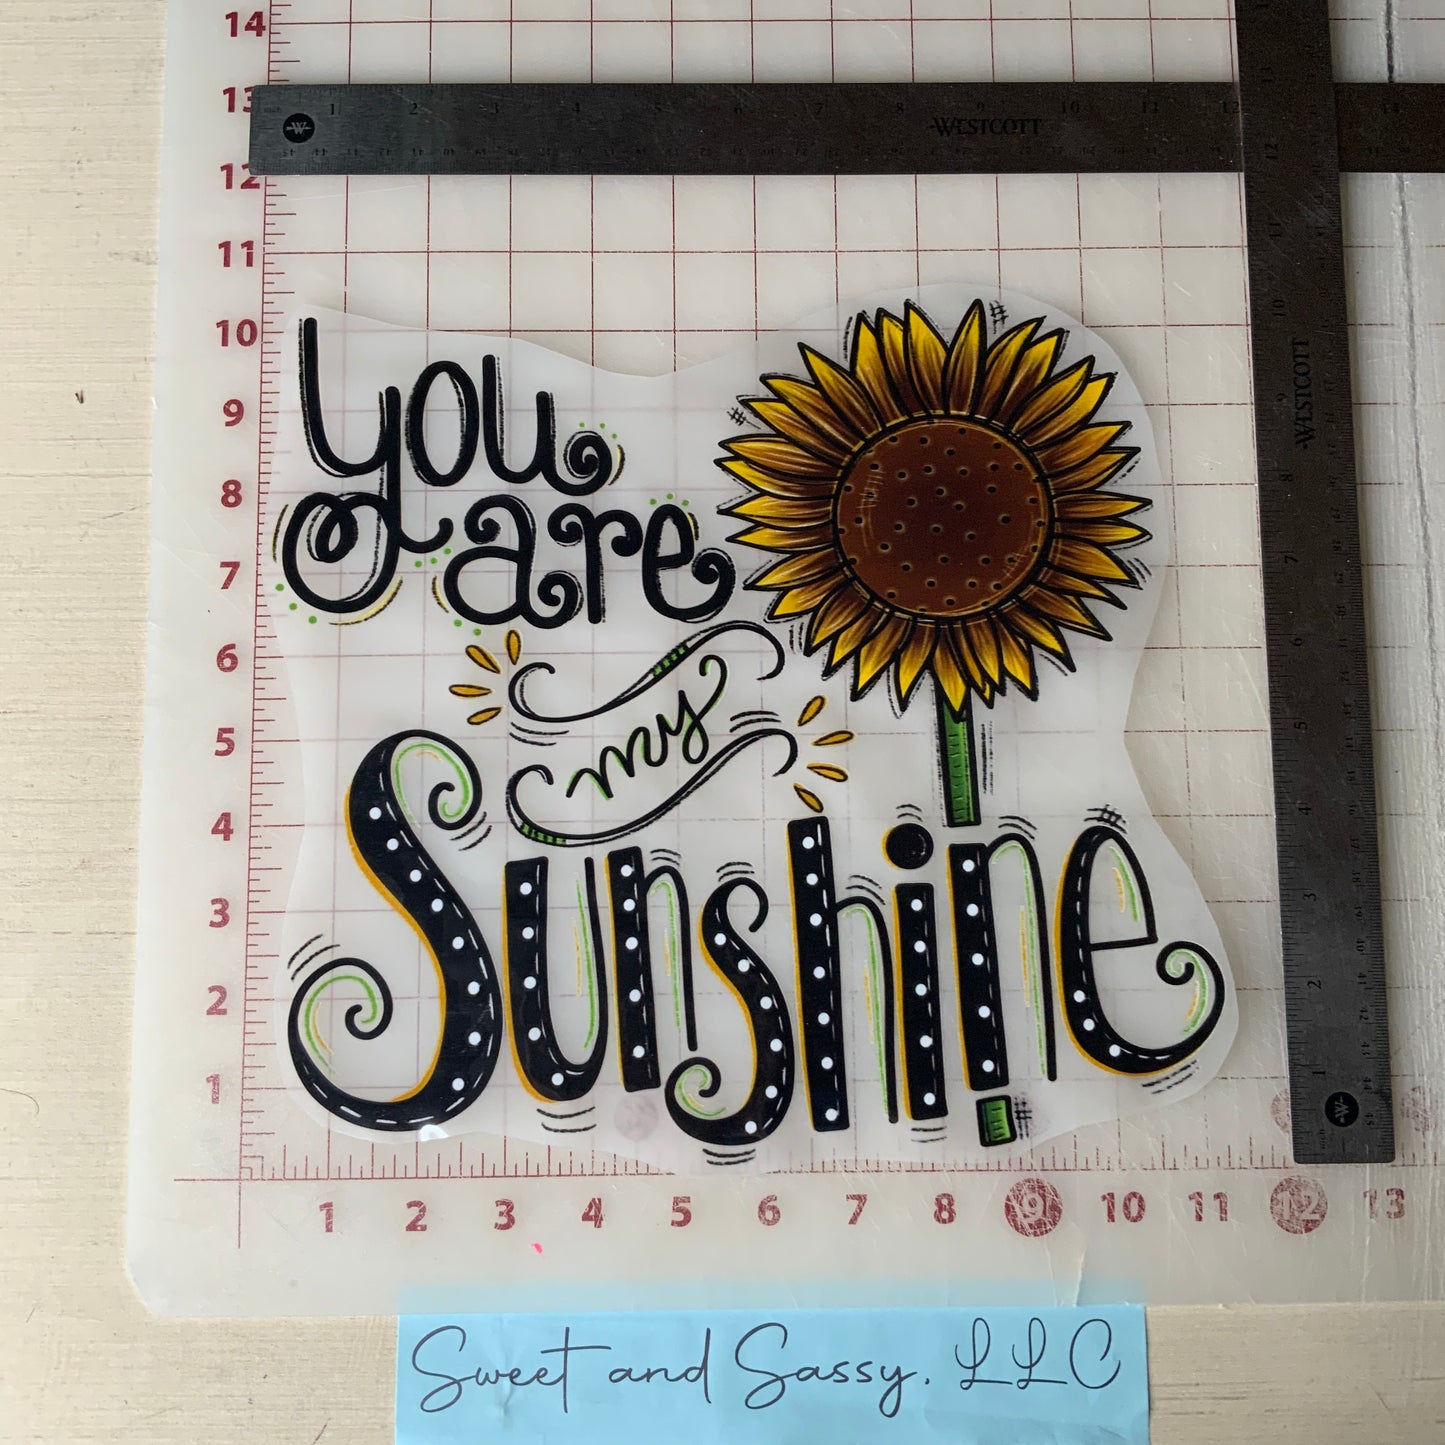 14
13
1 2 3 4 5 6 7 8 9 10 11 12 14
W WESTCOTT
12
11
10
9
8
7
6
5
4
3
2
1
you
are
my
Sunshine
WESTCOTT
W
1 2 3 4 5 6 7 8 9 10 11 12 13
Sweet and Sassy, LLC